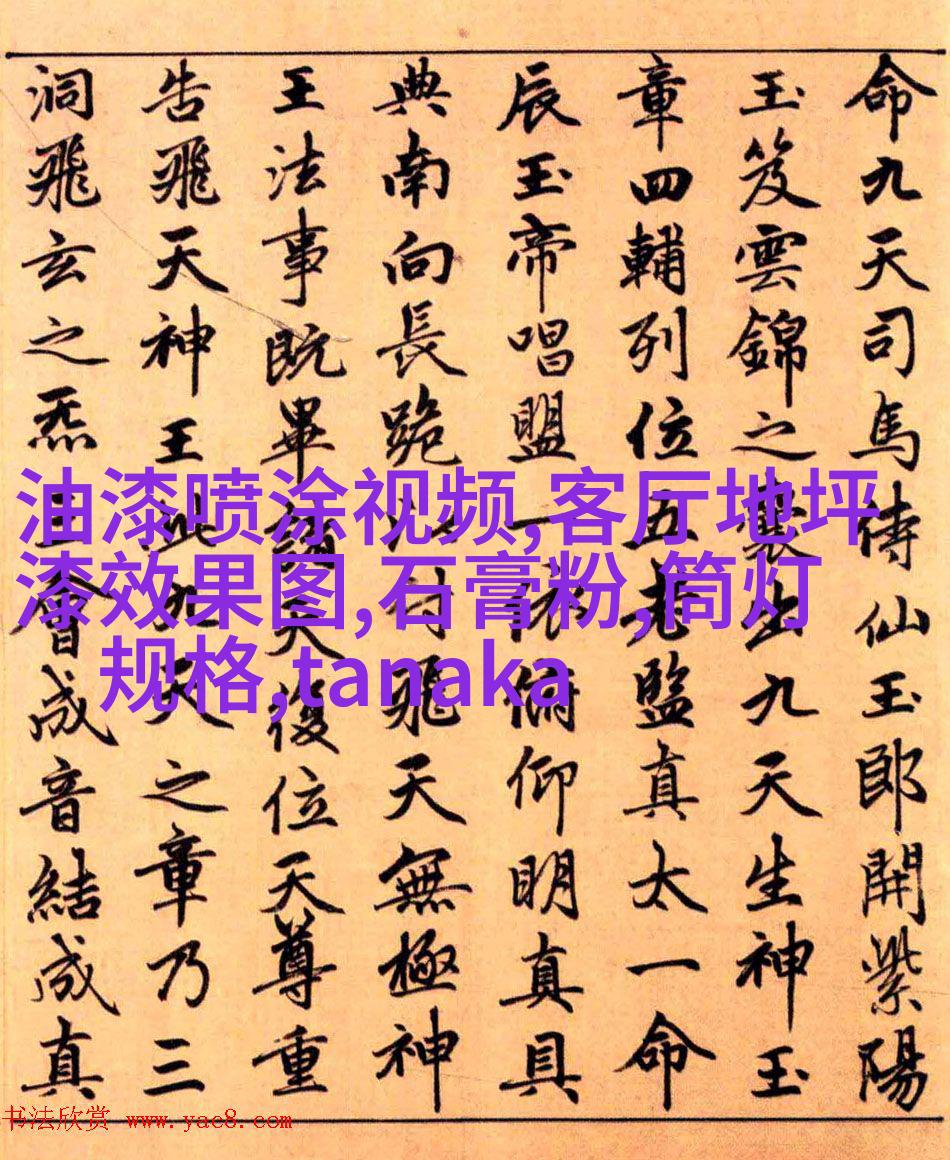 命九天司馬侍仙玉郎開紫陽
玉笈雲錦之囊出九天生神玉
章四輔列位五老監真太一命
辰玉帝唱盟一依俯仰明真具
典南向長跪以付飛天無極神
王法事既畢諸天復位天尊重
告飛天神王此九天之章乃三
洞飛玄之炁三會成音結成真
油漆喷涂视频,客厅地坪
漆效果图,石膏粉,筒灯
规格,tanaka
书法欣赏 www.yac8.com